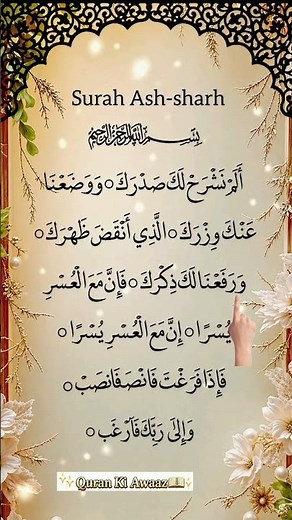 Surah Ash-sharh
بِسْمِ اللَّهِ الرَّحْمَٰنِ الرَّحِيمِ
أَلَمْ نَشْرَحْ لَكَ صَدْرَكَ ○ وَوَضَعْنَا
عَنْكَ وِزْرَكَ ○ الَّذِي أَنْقَضَ ظَهْرَكَ ○
وَرَفَعْنَا لَكَ ذِكْرَكَ ○ فَإِنَّ مَعَ الْعُسْرِ
يُسْرًا ○ إِنَّ مَعَ الْعُسْرِ يُسْرًا ○
فَإِذَا فَرَغْتَ فَانْصَفَانصَبْ ○
وَإِلَى رَبِّكَ فَآرْغَب ○
✨Quran Ki Awaaz📖✨